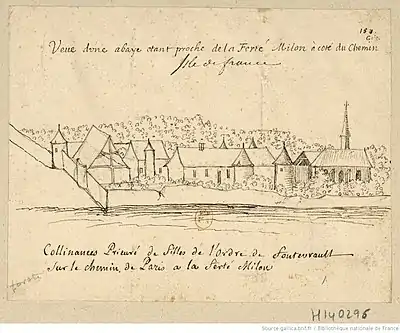 184.
Veue dune abaye etant proche de la Ferté Milon à coté du Chemin
Isle de france
Collinances Prieuré de filles de l'ordre de fontevrault
Sur le chemin de Paris a la ferté Milon
H140296
Source gallica.bnf.fr / Bibliothèque nationale de France